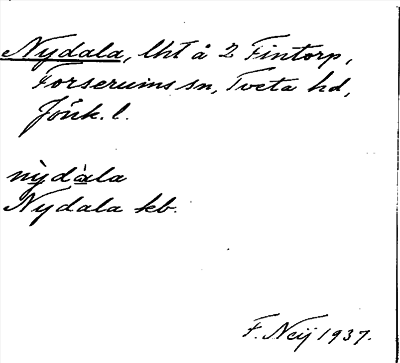 Nydala, lht å 2 Fintorp,
Forserums sn, Tveta hd,
Jönk. l.
nỳdàla
Nydala kb.
F. Neij 1937.